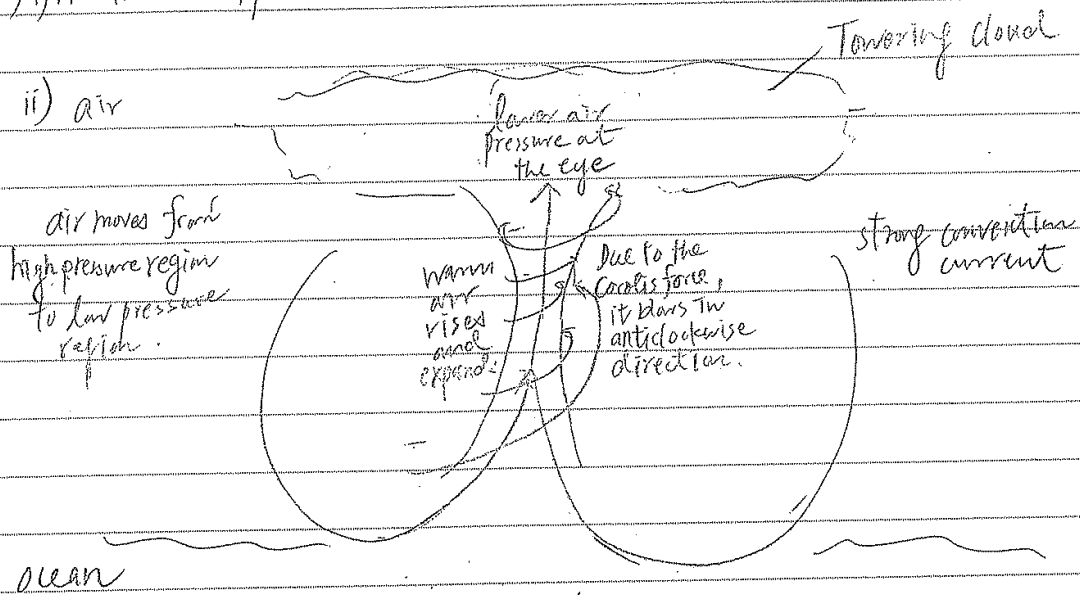 Towering cloud
ii) air
lower air
pressure at
the eye
air moves from
high pressure region
to low pressure
region.
warm
air
rises
and
expand.
Due to the
Corolis force,
it blows in
anticlockwise
direction.
strong convection
current
ocean